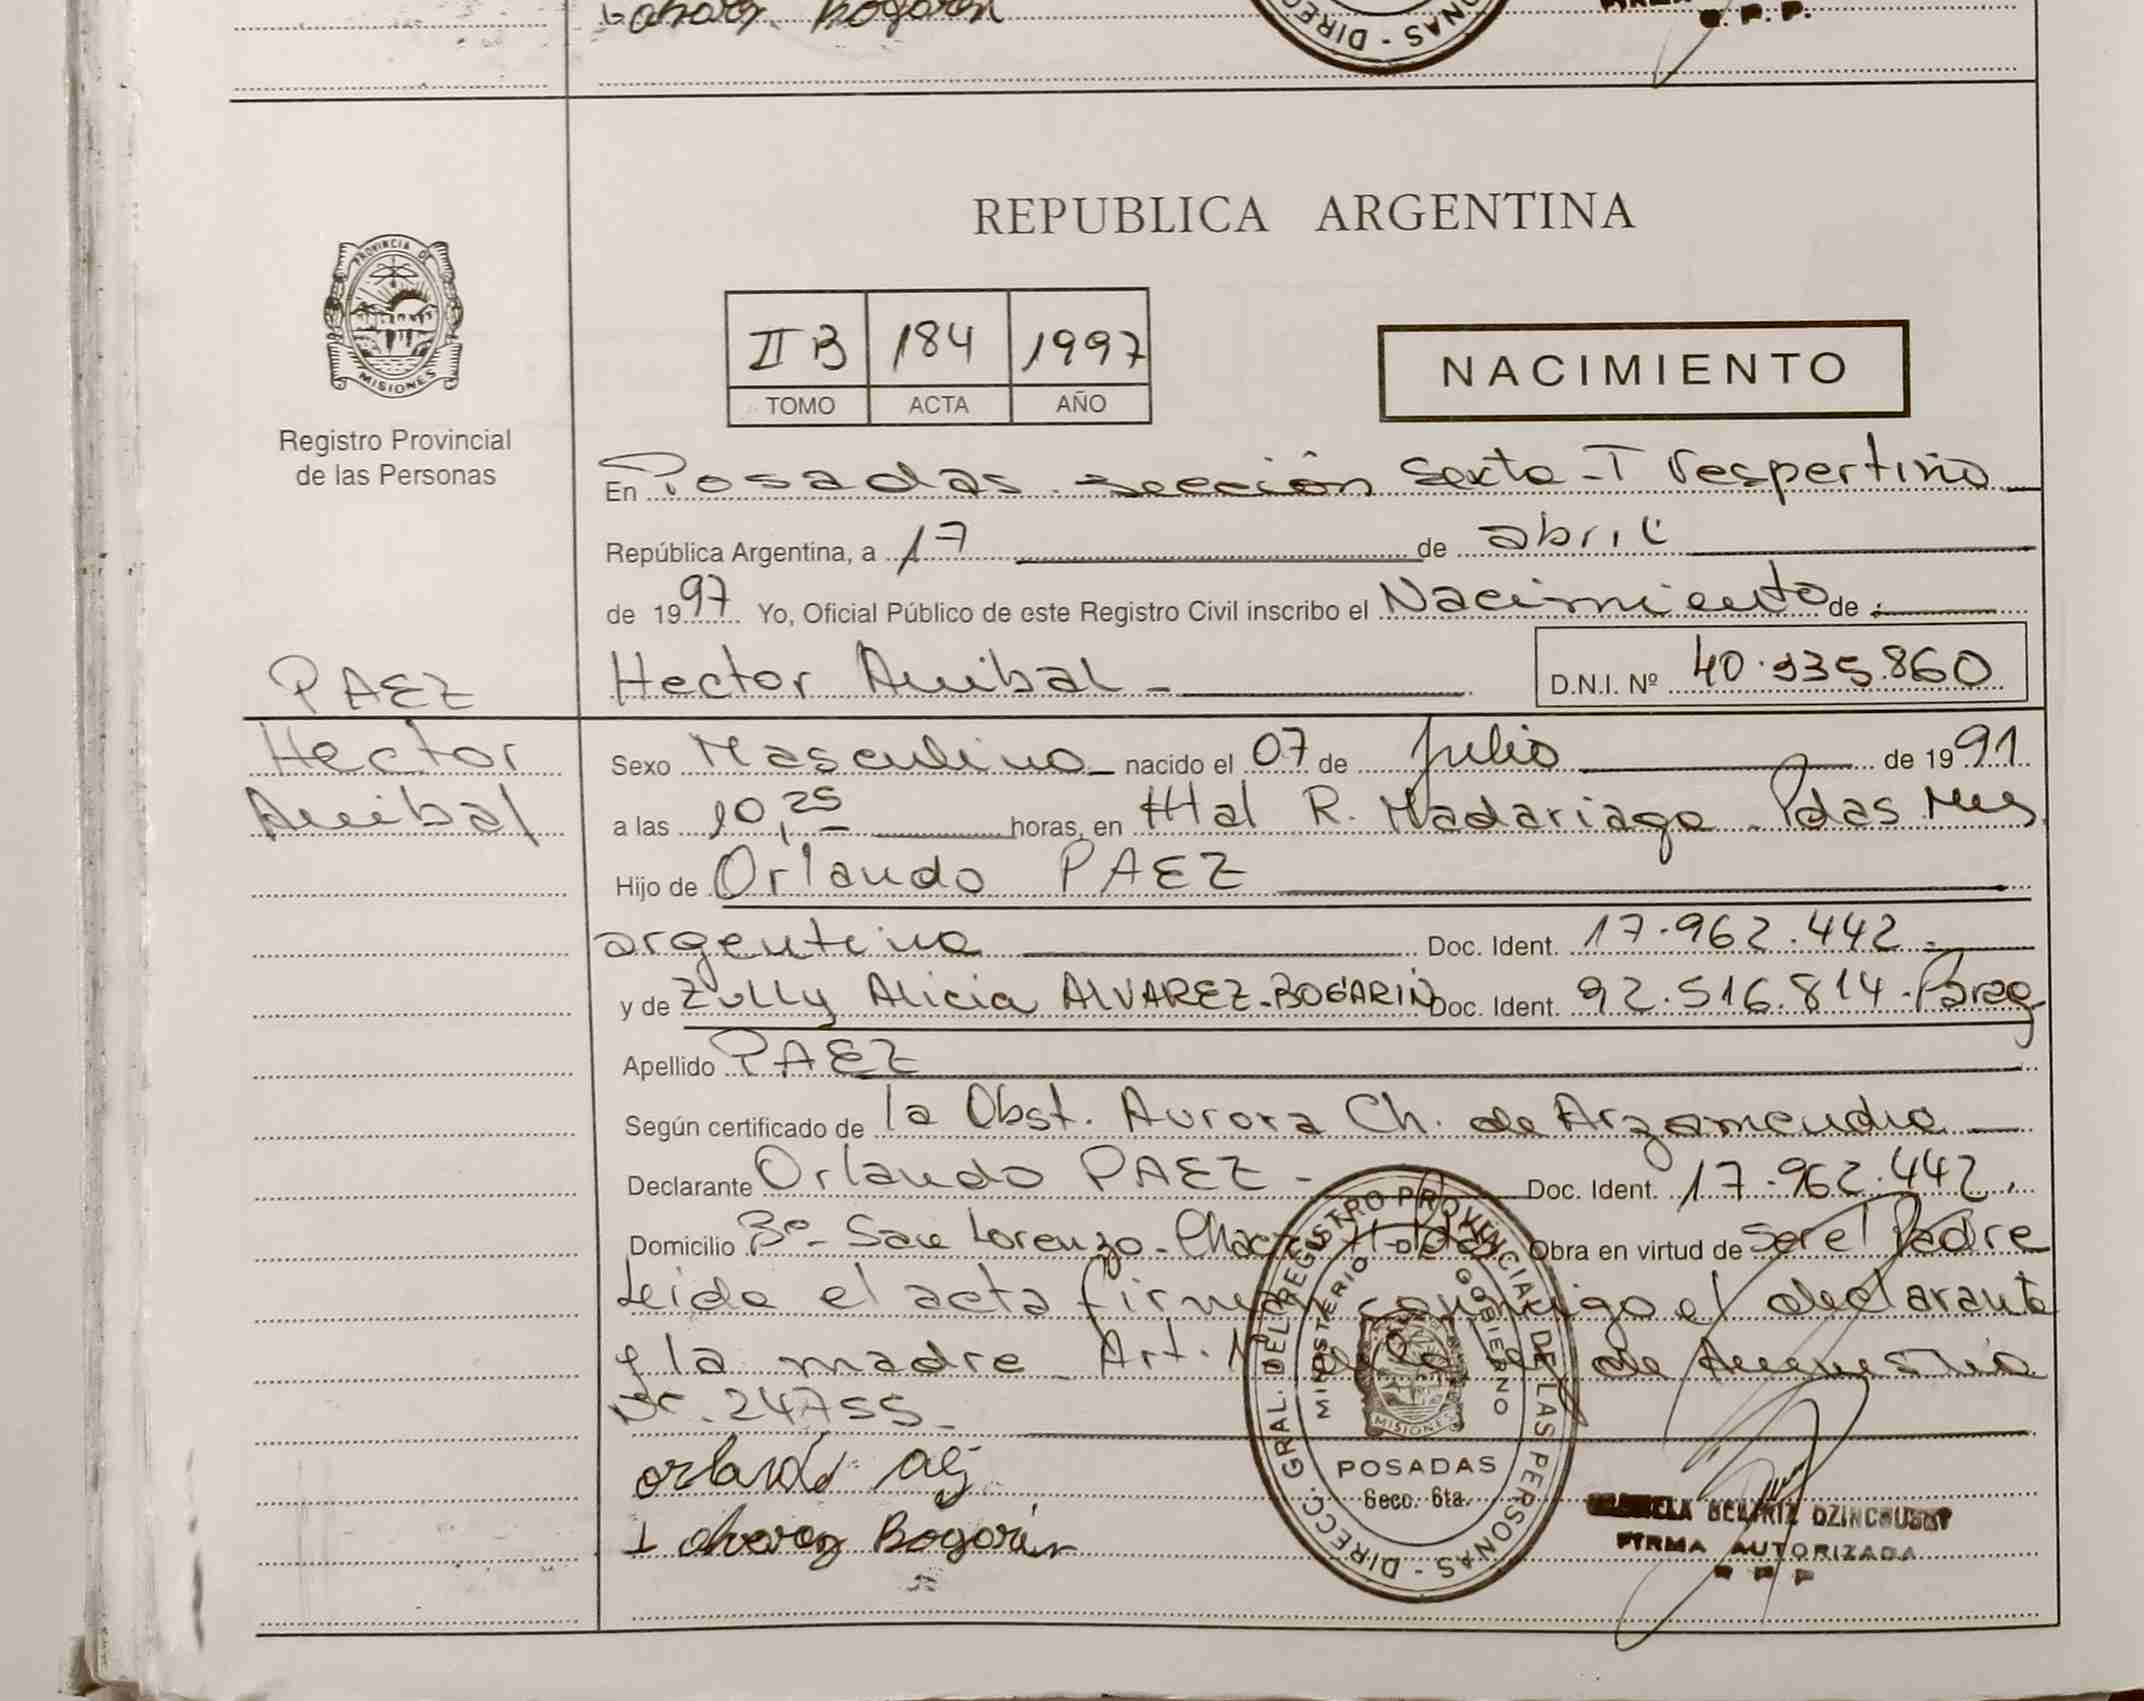 Bogarin
R. P. P.
PROVINCIA DE MISIONES
REPUBLICA ARGENTINA
II B 184 1997
TOMO ACTA AÑO
NACIMIENTO
Registro Provincial
de las Personas
En Posadas sección Sexta - T Vespertino
República Argentina, a 17 de abril
de 1997 Yo, Oficial Público de este Registro Civil inscribo el Nacimiento de
PAEZ
Hector Anibal
Hector Anibal - D.N.I. Nº 40.935.860
Sexo Masculino nacido el 07 de Julio de 1991
a las 10,25 horas, en Htal R. Madariaga - Pdas Mns
Hijo de Orlando PAEZ
argentino Doc. Ident. 17.962.442.-
y de Zully Alicia ALVAREZ-BOGARIN Doc. Ident. 92.516.814-Parag
Apellido PAEZ
Según certificado de la Obst. Aurora Ch. de Arzamendia
Declarante Orlando PAEZ - Doc. Ident. 17.962.442.
Domicilio Bº San Lorenzo - Obra en virtud de ser el Padre
Leida el acta firman conmigo el declarante
y la madre - Art. de la ley de Amnistia
Nr. 24755-
orlando
Bogarin
DIRECC. GRAL. DEL REGISTRO PROVINCIAL DE LAS PERSONAS
MINISTERIO GOBIERNO
MISIONES
POSADAS
Secc. 6ta.
BEATRIZ
FIRMA AUTORIZADA
R P P